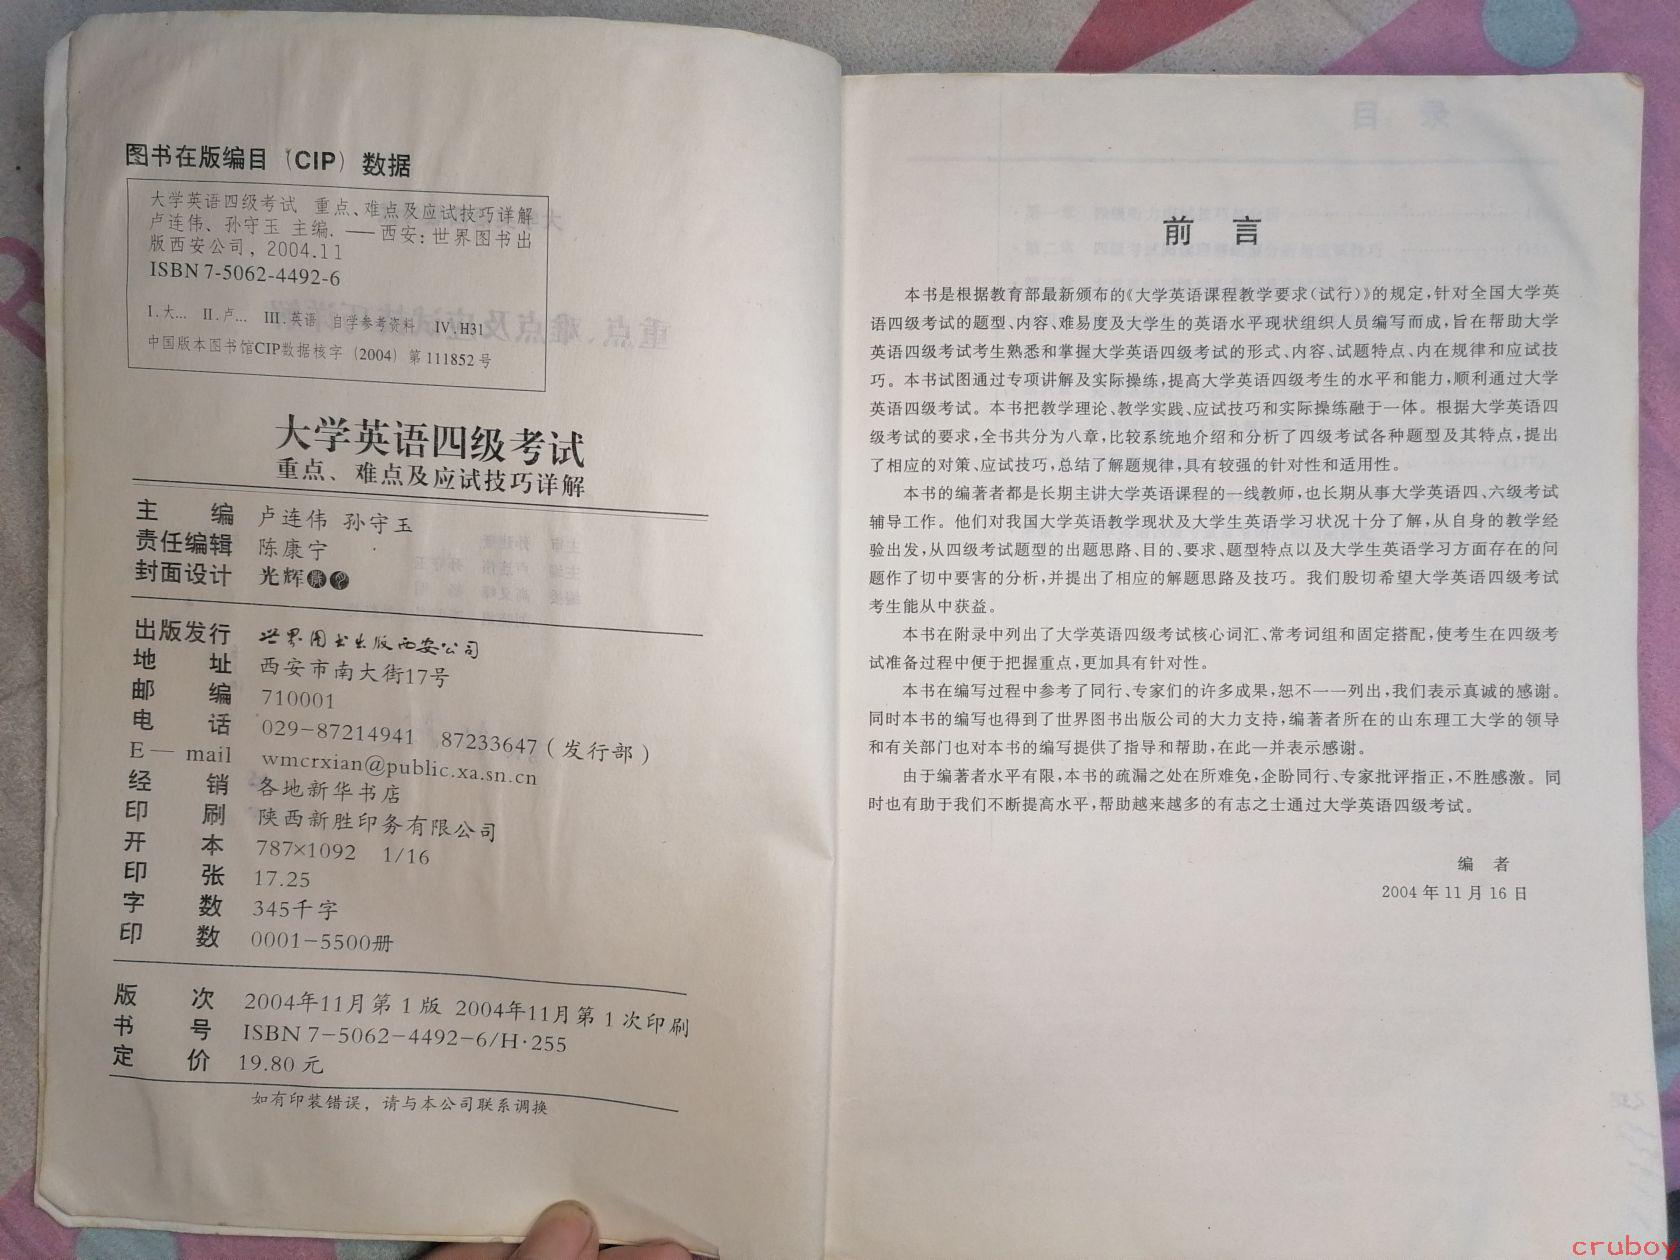 图书在版编目（CIP）数据
大学英语四级考试 重点、难点及应试技巧详解
卢连伟、孙守玉 主编. ——西安：世界图书出
版西安公司，2004.11
ISBN 7-5062-4492-6
I.大... II.卢... III.英语 自学参考资料 IV.H31
中国版本图书馆CIP数据核字（2004）第111852号
大学英语四级考试
重点、难点及应试技巧详解
主 编 卢连伟 孙守玉
责任编辑 陈康宁
封面设计 光辉
出版发行 世界图书出版西安公司
地 址 西安市南大街17号
邮 编 710001
电 话 029-87214941 87233647（发行部）
E—mail wmcrxian@public.xa.sn.cn
经 销 各地新华书店
印 刷 陕西新胜印务有限公司
开 本 787×1092 1/16
印 张 17.25
字 数 345千字
印 数 0001-5500册
版 次 2004年11月第1版 2004年11月第1次印刷
书 号 ISBN 7-5062-4492-6/H·255
定 价 19.80元
如有印装错误，请与本公司联系调换
前 言
本书是根据教育部最新颁布的《大学英语课程教学要求（试行）》的规定，针对全国大学英
语四级考试的题型、内容、难易度及大学生的英语水平现状组织人员编写而成，旨在帮助大学
英语四级考试考生熟悉和掌握大学英语四级考试的形式、内容、试题特点、内在规律和应试技
巧。本书试图通过专项讲解及实际操练，提高大学英语四级考生的水平和能力，顺利通过大学
英语四级考试。本书把教学理论、教学实践、应试技巧和实际操练融于一体。根据大学英语四
级考试的要求，全书共分为八章，比较系统地介绍和分析了四级考试各种题型及其特点，提出
了相应的对策、应试技巧，总结了解题规律，具有较强的针对性和适用性。
本书的编著者都是长期主讲大学英语课程的一线教师，也长期从事大学英语四、六级考试
辅导工作。他们对我国大学英语教学现状及大学生英语学习状况十分了解，从自身的教学经
验出发，从四级考试题型的出题思路、目的、要求、题型特点以及大学生英语学习方面存在的问
题作了切中要害的分析，并提出了相应的解题思路及技巧。我们殷切希望大学英语四级考试
考生能从中获益。
本书在附录中列出了大学英语四级考试核心词汇、常考词组和固定搭配，使考生在四级考
试准备过程中便于把握重点，更加具有针对性。
本书在编写过程中参考了同行、专家们的许多成果，恕不一一列出，我们表示真诚的感谢。
同时本书的编写也得到了世界图书出版公司的大力支持，编著者所在的山东理工大学的领导
和有关部门也对本书的编写提供了指导和帮助，在此一并表示感谢。
由于编著者水平有限，本书的疏漏之处在所难免，企盼同行、专家批评指正，不胜感激。同
时也有助于我们不断提高水平，帮助越来越多的有志之士通过大学英语四级考试。
编 者
2004年11月16日
cruboy